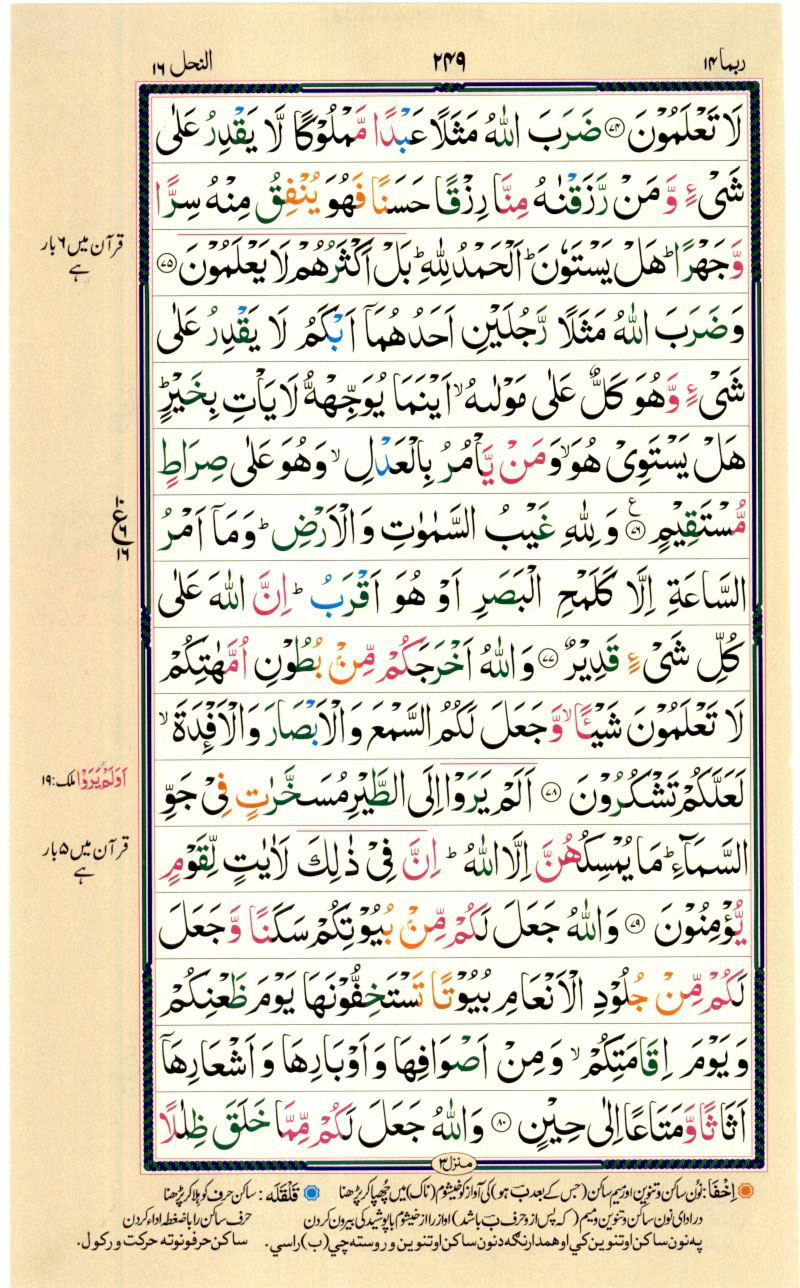 ربما ۱۴
۲۴۹
النحل ۱۶
لَا تَعْلَمُوْنَ ﴿۷۴﴾ ضَرَبَ اللّٰهُ مَثَلًا عَبْدًا مَّمْلُوْكًا لَّا یَقْدِرُ عَلٰى
شَیْءٍ وَّ مَنْ رَّزَقْنٰهُ مِنَّا رِزْقًا حَسَنًا فَهُوَ یُنْفِقُ مِنْهُ سِرًّا
وَّ جَهْرًا ؕ هَلْ یَسْتَوٗنَ ؕ اَلْحَمْدُ لِلّٰهِ ؕ بَلْ اَكْثَرُهُمْ لَا یَعْلَمُوْنَ ﴿۷۵﴾
قرآن میں ۶ بار ہے
وَ ضَرَبَ اللّٰهُ مَثَلًا رَّجُلَیْنِ اَحَدُهُمَاۤ اَبْكَمُ لَا یَقْدِرُ عَلٰى
شَیْءٍ وَّ هُوَ كَلٌّ عَلٰى مَوْلٰىهُ ۙ اَیْنَمَا یُوَجِّهْهُّ لَا یَاْتِ بِخَیْرٍ ؕ
هَلْ یَسْتَوِیْ هُوَ ۙ وَ مَنْ یَّاْمُرُ بِالْعَدْلِ ۙ وَ هُوَ عَلٰى صِرَاطٍ
مُّسْتَقِیْمٍ ﴿۷۶﴾ وَ لِلّٰهِ غَیْبُ السَّمٰوٰتِ وَ الْاَرْضِ ؕ وَ مَاۤ اَمْرُ
ع ۱۰ ۶ ۱۶
السَّاعَةِ اِلَّا كَلَمْحِ الْبَصَرِ اَوْ هُوَ اَقْرَبُ ؕ اِنَّ اللّٰهَ عَلٰى
كُلِّ شَیْءٍ قَدِیْرٌ ﴿۷۷﴾ وَ اللّٰهُ اَخْرَجَكُمْ مِّنْۢ بُطُوْنِ اُمَّهٰتِكُمْ
لَا تَعْلَمُوْنَ شَیْـًٔا ۙ وَّ جَعَلَ لَكُمُ السَّمْعَ وَ الْاَبْصَارَ وَ الْاَفْـِٕدَةَ ۙ
لَعَلَّكُمْ تَشْكُرُوْنَ ﴿۷۸﴾ اَلَمْ یَرَوْا اِلَى الطَّیْرِ مُسَخَّرٰتٍ فِیْ جَوِّ
اَوَلَمْ یَرَوْا ملک: ۱۹
السَّمَآءِ ؕ مَا یُمْسِكُهُنَّ اِلَّا اللّٰهُ ؕ اِنَّ فِیْ ذٰلِكَ لَاٰیٰتٍ لِّقَوْمٍ
قرآن میں ۵ بار ہے
یُّؤْمِنُوْنَ ﴿۷۹﴾ وَ اللّٰهُ جَعَلَ لَكُمْ مِّنْۢ بُیُوْتِكُمْ سَكَنًا وَّ جَعَلَ
لَكُمْ مِّنْ جُلُوْدِ الْاَنْعَامِ بُیُوْتًا تَسْتَخِفُّوْنَهَا یَوْمَ ظَعْنِكُمْ
وَ یَوْمَ اِقَامَتِكُمْ ۙ وَ مِنْ اَصْوَافِهَا وَ اَوْبَارِهَا وَ اَشْعَارِهَاۤ
اَثَاثًا وَّ مَتَاعًا اِلٰى حِیْنٍ ﴿۸۰﴾ وَ اللّٰهُ جَعَلَ لَكُمْ مِّمَّا خَلَقَ ظِلٰلًا
منزل ۳
اِخْفَا: نُون ساکن و تنوین اور میم ساکن (جس کے بعد بَ ہو) کی آواز کو خیشوم (ناک) میں چُھپا کر پڑھنا قَلْقَلَه: ساکن حرف کو ہلا کر پڑھنا
در ادای نون ساکن و تنوین و میم (که پس از و حرف بَ باشد) اواز را از خیشوم با پوشیدگی بیرون کردن حرف ساکن را با ضغطه اداء کردن
په نون ساکن او تنوین کې او همدارنګه د نون ساکن او تنوین وروسته چې (ب) راسي. ساکن حرفونو ته حرکت ورکول.